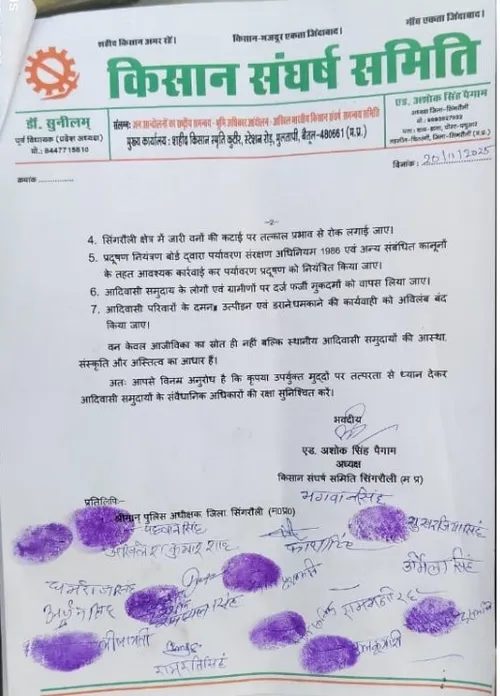 शहीद किसान अमर रहें। किसान-मजदूर एकता जिंदाबाद। गाँव एकता जिंदाबाद।
किसान संघर्ष समिति
डॉ. सुनीलम्
पूर्व विधायक (प्रदेश अध्यक्ष)
मो.: 8447715810
संलग्न: जन आन्दोलनों का राष्ट्रीय समन्वय -भूमि अधिकार आन्दोलन - अखिल भारतीय किसान संघर्ष समन्वय समिति
मुख्य कार्यालय: शहीद किसान स्मृति कुटीर, स्टेशन रोड, मुलतापी, बैतूल-480661 (म.प्र.)
एड. अशोक सिंह पैगाम
अध्यक्ष जिला-सिंगरौली
क्रमांक ..............
दिनांक: 20/11/2025
-2-
4. सिंगरौली क्षेत्र में जारी वनों की कटाई पर तत्काल प्रभाव से रोक लगाई जाए।
5. प्रदूषण नियंत्रण बोर्ड द्वारा पर्यावरण संरक्षण अधिनियम 1986 एवं अन्य संबंधित कानूनों
के तहत आवश्यक कार्रवाई कर पर्यावरण प्रदूषण को नियंत्रित किया जाए।
6. आदिवासी समुदाय के लोगों एवं ग्रामीणों पर दर्ज फर्जी मुकदमों को वापस लिया जाए।
7. आदिवासी परिवारों के दमन, उत्पीड़न एवं डराने धमकाने की कार्यवाही को अविलंब बंद
किया जाए।
वन केवल आजीविका का स्रोत ही नहीं बल्कि स्थानीय आदिवासी समुदायों की आस्था,
संस्कृति और अस्तित्व का आधार हैं।
अतः आपसे विनम्र अनुरोध है कि कृपया उपर्युक्त मुद्दों पर तत्परता से ध्यान देकर
आदिवासी समुदायों के संवैधानिक अधिकारों की रक्षा सुनिश्चित करें।
भवदीय
एड. अशोक सिंह पैगाम
अध्यक्ष
किसान संघर्ष समिति सिंगरौली (म प्र)
भगवान सिंह
प्रतिलिपि:-
श्रीमान पुलिस अधीक्षक जिला सिंगरौली (म०प्र०)
अखिलेश कुमार शाह
धर्मराज सिंह
उर्मिला सिंह
अर्जुन सिंह